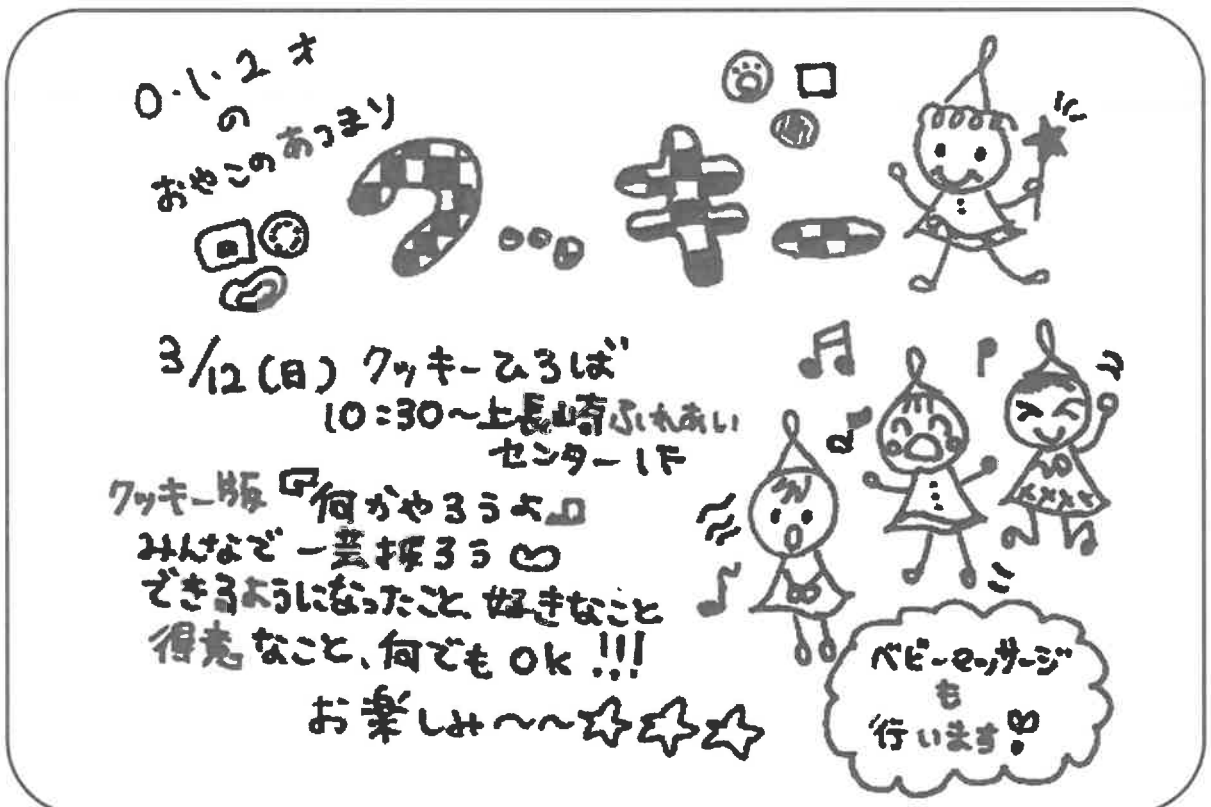 0・1・2才
の
おやこのあつまり
クッキー
3/12(日) クッキーひろば
10:30〜上長崎ふれあい
センター1F
クッキー版『何かやろうよ』
みんなで一芸披ろう♡
できるようになったこと、好きなこと
得意なこと、何でもOK!!!
お楽しみ〜〜☆☆☆
ベビーマッサージ
も
行います